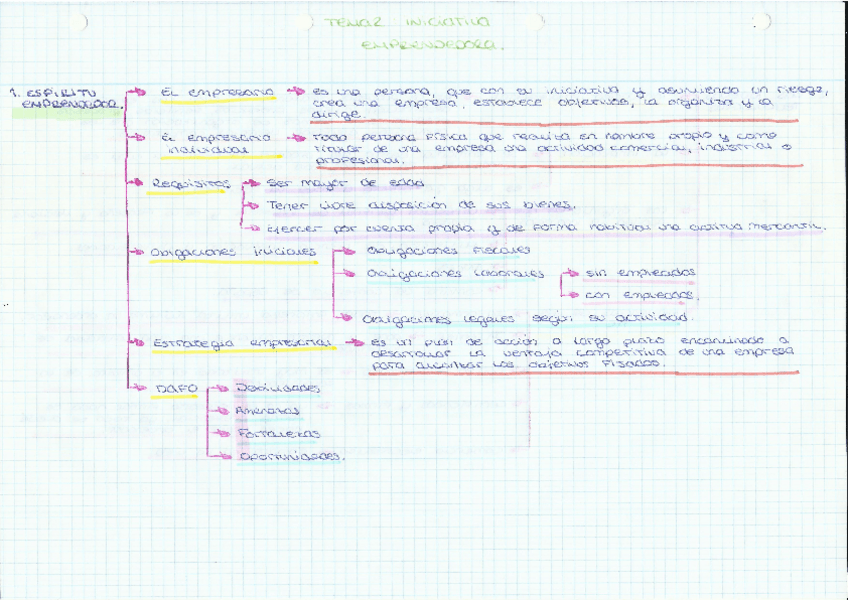 TEMA2 INICIATIVA
EMPRENDEDORA.
1. ESPIRITU
EMPRENDEDOR.
El empresario
es una persona, que con su iniciativa y asumiendo un riesgo,
crea una empresa, establece objetivos, la organiza y la
dirige.
El empresario
individual
Todo persona física que realiza en nombre propio y como
titular de una empresa una actividad comercial, industrial o
profesional.
Requisitos
Ser mayor de edad.
Tener libre disposición de sus bienes.
Ejercer por cuenta propia y de forma habitual una mercantil.
Obligaciones iniciales
Obligaciones fiscales
Obligaciones laborales
sin empleados
con empleados.
Obligaciones legales según su actividad.
Estrategia empresarial
Es un plan de acción a largo plazo encaminado a
desarrollar la ventaja competitiva de una empresa
para alcanzar los objetivos fijados.
DAFO
Debilidades
Amenazas
Fortalezas
Oportunidades.